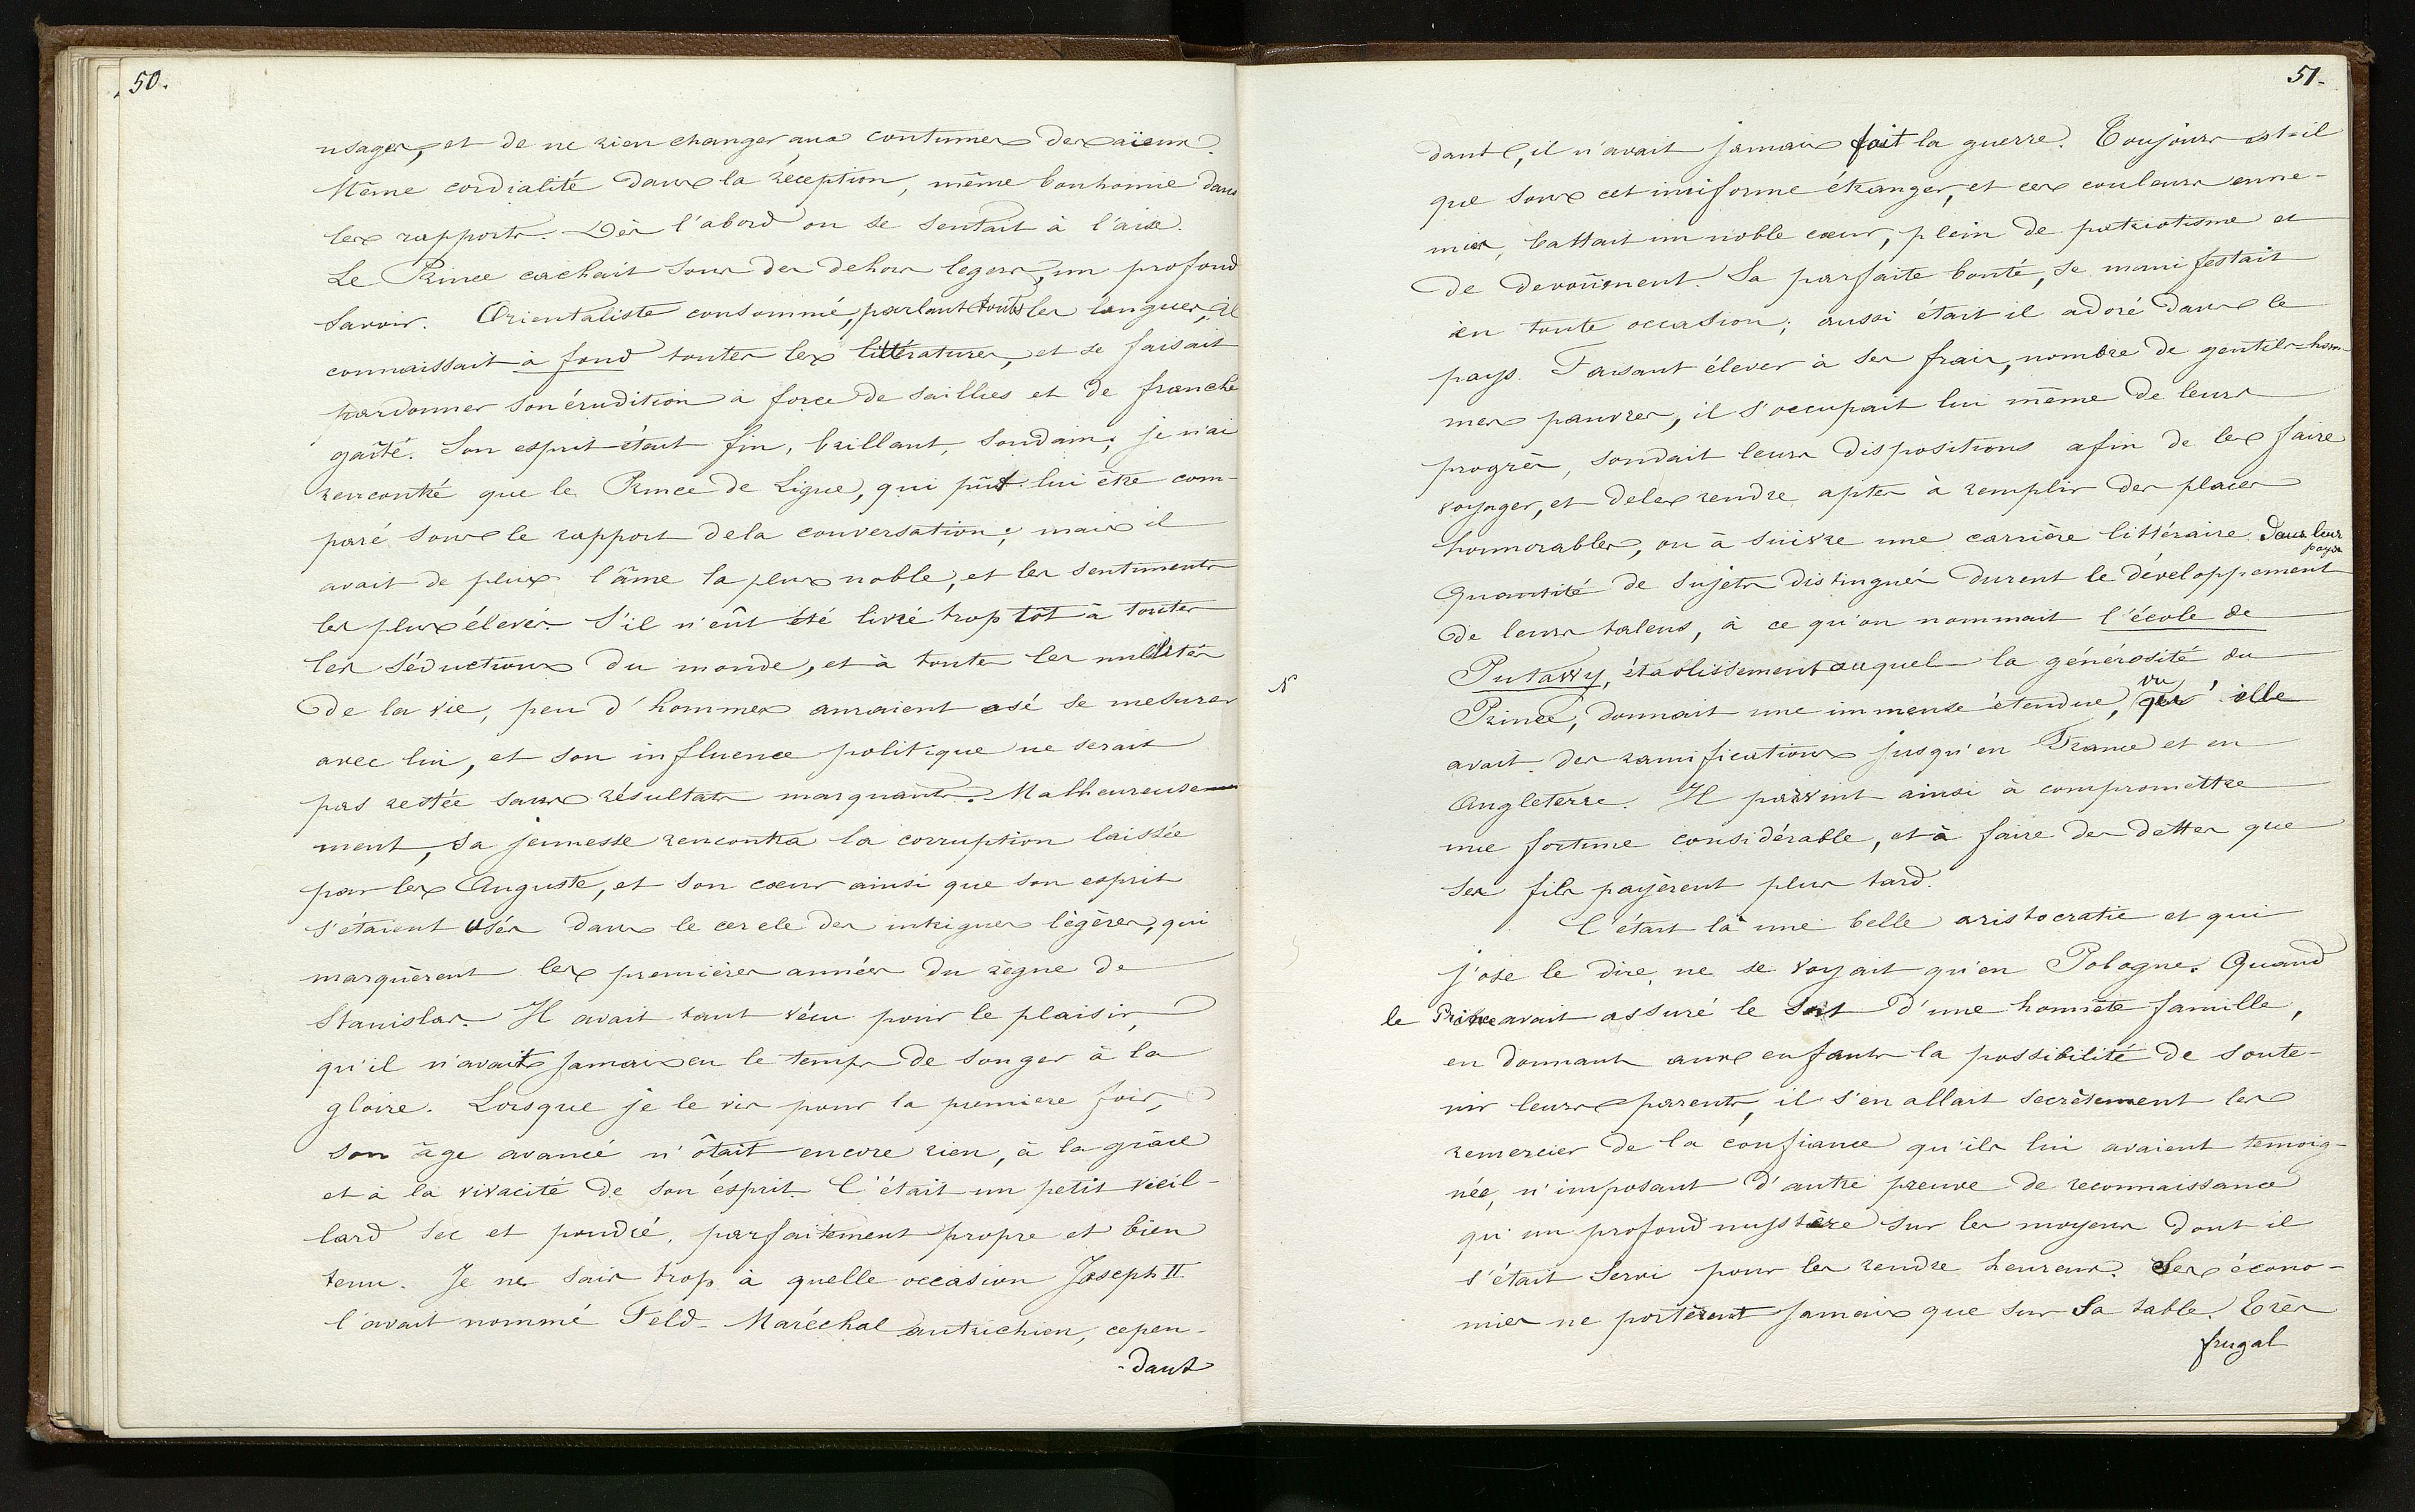 50.
usages, et de ne rien changer aux coutumes des aïeux.
Même cordialité dans la réception, même bonhomie dans
les rapports. Dès l'abord on se sentait à l'aise.
Le Prince cachait sous des dehors legers, un profond
savoir. Orientaliste consommé, parlant toutes les langues, il
connaissait à fond toutes les littératures, et se faisait
pardonner son érudition à force de saillies et de franche
gaîté. Son esprit était fin, brillant, soudain; je n'ai
rencontré que le Prince de Ligne, qui pût lui être com-
paré sous le rapport de la conversation; mais il
avait de plus l'âme la plus noble, et les sentiments
les plus élevés. S'il n'eût été livré trop tôt à toutes
les séductions du monde, et à toutes les nullités
de la vie, peu d'hommes auraient osé se mesurer
avec lui, et son influence politique ne serait
pas restée sans résultats marquants. Malheureuse-
ment, sa jeunesse rencontra la corruption laissée
par les Auguste, et son cœur ainsi que son esprit
s'étaient usés dans le cercle des intrigues légères, qui
marquèrent les premières années du règne de
Stanislas. Il avait tant vécu pour le plaisir,
qu'il n'avait jamais eu le temps de songer à la
gloire. Lorsque je le vis pour la premiere fois,
son âge avancé n'ôtait encore rien, à la grâce
et à la vivacité de son ésprit. C'était un petit vieil-
lard sec et poudré, parfaitement propre et bien
tenu. Je ne sais trop à quelle occasion Joseph II
l'avait nommé Feld-Maréchal autrichien, cepen-
-dant
51.
dant, il n'avait jamais fait la guerre. Toujours est-il
que sous cet uniforme étranger, et ces couleurs enne-
mies, battait un noble cœur, plein de patriotisme et
de devoûment. Sa parfaite bonté, se manifestait
en toute occasion; aussi était il adoré dans le
pays. Faisant élever à ses frais, nombre de gentils-hom-
mes pauvres, il s'occupait lui même de leurs
progrès, sondait leurs dispositions afin de les faire
voyager, et de les rendre aptes à remplir des places
honnorables, ou à suivre une carrière littéraire dans leur
pays
Quantité de sujets distingués durent le développement
de leurs talens, à ce qu'on nommait l'école de
Putawy, établissement auquel la générosité du
N
Prince, donnait une immense étendue, vu qu'elle
avait des ramifications jusqu'en France et en
Angleterre. Il parvint ainsi à compromettre
une fortune considérable, et à faire des dettes que
ses fils payèrent plus tard.
C'était là une belle aristocratie et qui
j'ose le dire, ne se voyait qu'en Pologne. Quand
le Prince avait assuré le sort d'une honnête famille,
en donnant aux enfants la possibilité de soute-
nir leurs parents, il s'en allait secrètement les
remercier de la confiance qu'ils lui avaient temoig-
née, n'imposant d'autre preuve de reconnaissance
qu'un profond mystère sur les moyens dont il
s'était servi pour les rendre heureux. Ses écono-
mies ne portèrent jamais que sur sa table. Très
frugal